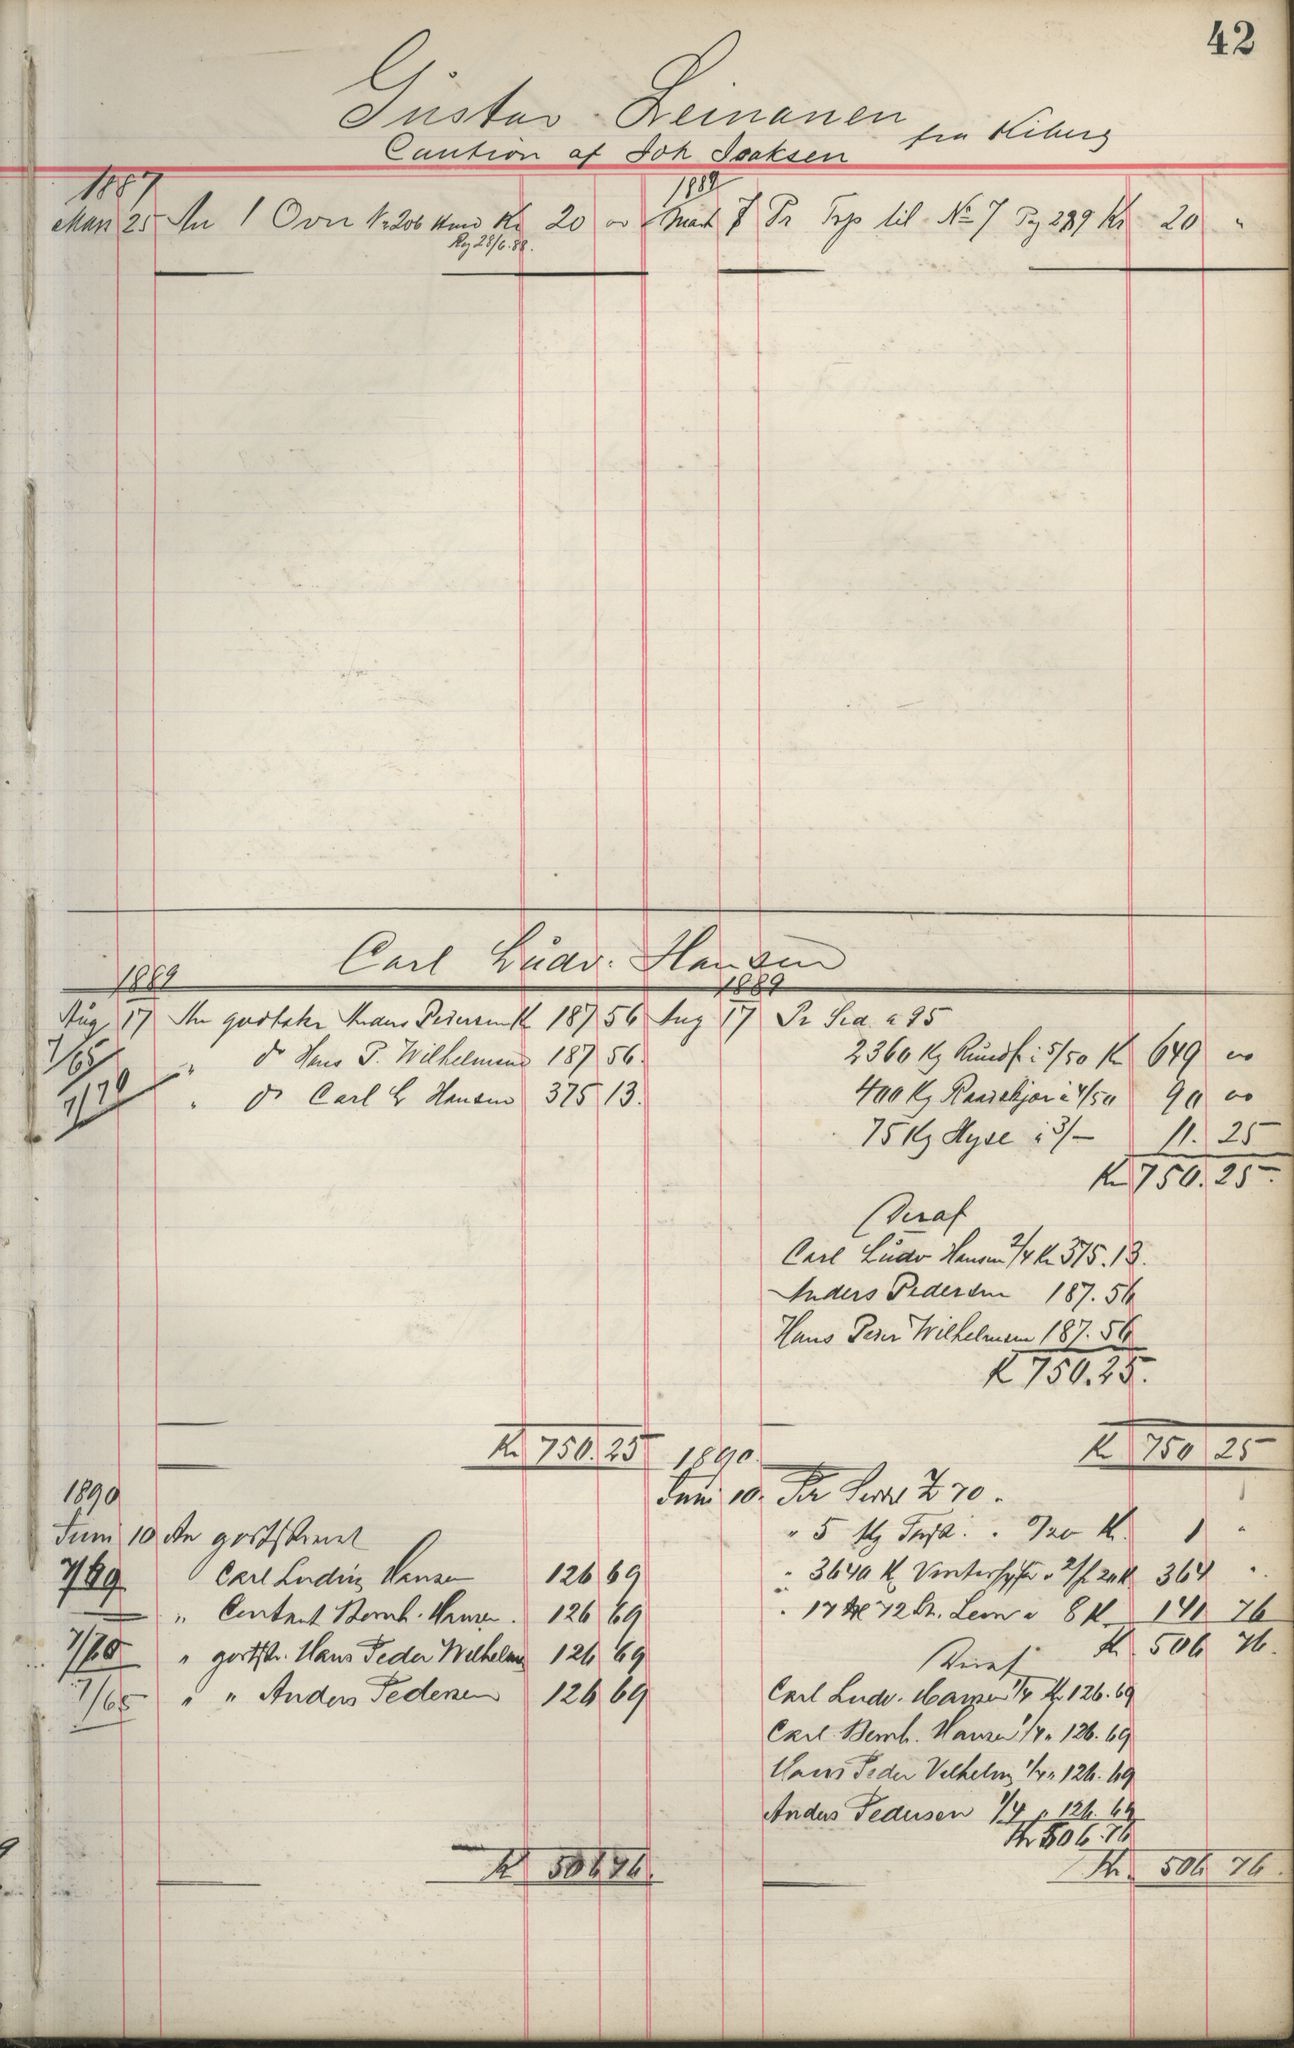 42
Gustav Leinanen fra Kiberg
Caution af Joh Isaksen
1887
Mars 25 An 1 Ovn No 206 Kr 20 00
Reg 28/6.88.
1889
Mart 7 Pr Trp til No 7 Pag 289 Kr 20 "
Carl Ludv. Hansen
1889
Aug 17 An godtskr Anders Pedersen Kr 187 56
7/65 " do Hans P. Wilhelmsen 187 56.
7/70 " do Carl L Hansen 375 13.
1889
Aug 17 Pr Sed. a 95
2360 Kg Rundf. à 5/50 Kr 649 00
400 Kg Raaskjær à 4/50 90 00
75 Kg Hyse à 3/- 11. 25
Kr 750. 25.
Deraf
Carl Ludv Hansen 2/4 Kr 375.13.
Anders Pedersen 187.56
Hans Peder Wilhelmsen 187.56
K 750.25.
Kr 750. 25
Kr 750 25
1890
Juni 10 An godtskrevet
7/69 Carl Ludvig Hansen 126 69
" Contant Bernh. Hansen. 126 69
7/70 " godtskr. Hans Peder Wilhelms 126 69
7/65 " " Anders Pedersen 126 69
1890.
Juni 10. Pr Seddel 70.
" 5 Kg Torsk. " 0/20 Kr. 1 "
" 3640 K 364 "
" 17 72 Lt. Lever a 8 K 141 76
Kr. 506 76.
Deraf
Carl Ludv. Hansen 1/4 Kr 126.69
Carl Bernh. Hansen 1/4 " 126.69
Hans Peder Vilhelms 1/4 " 126.69
Anders Pedersen 1/4 " 126.69
Kr 506.76
K 506 76.
Kr. 506 76.